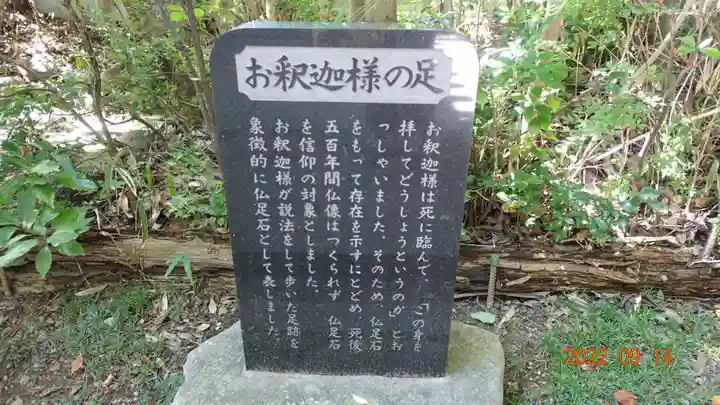 お釈迦様の足
お釈迦様は死に臨んで、「この身を
拝してどうしようというのか」とお
っしゃいました。そのため、仏足石
をもって存在を示すにとどめ、死後
五百年間仏像はつくられず、仏足石
を信仰の対象としました。
お釈迦様が説法をして歩いた足跡を
象徴的に仏足石として表しました。
2022 09 14